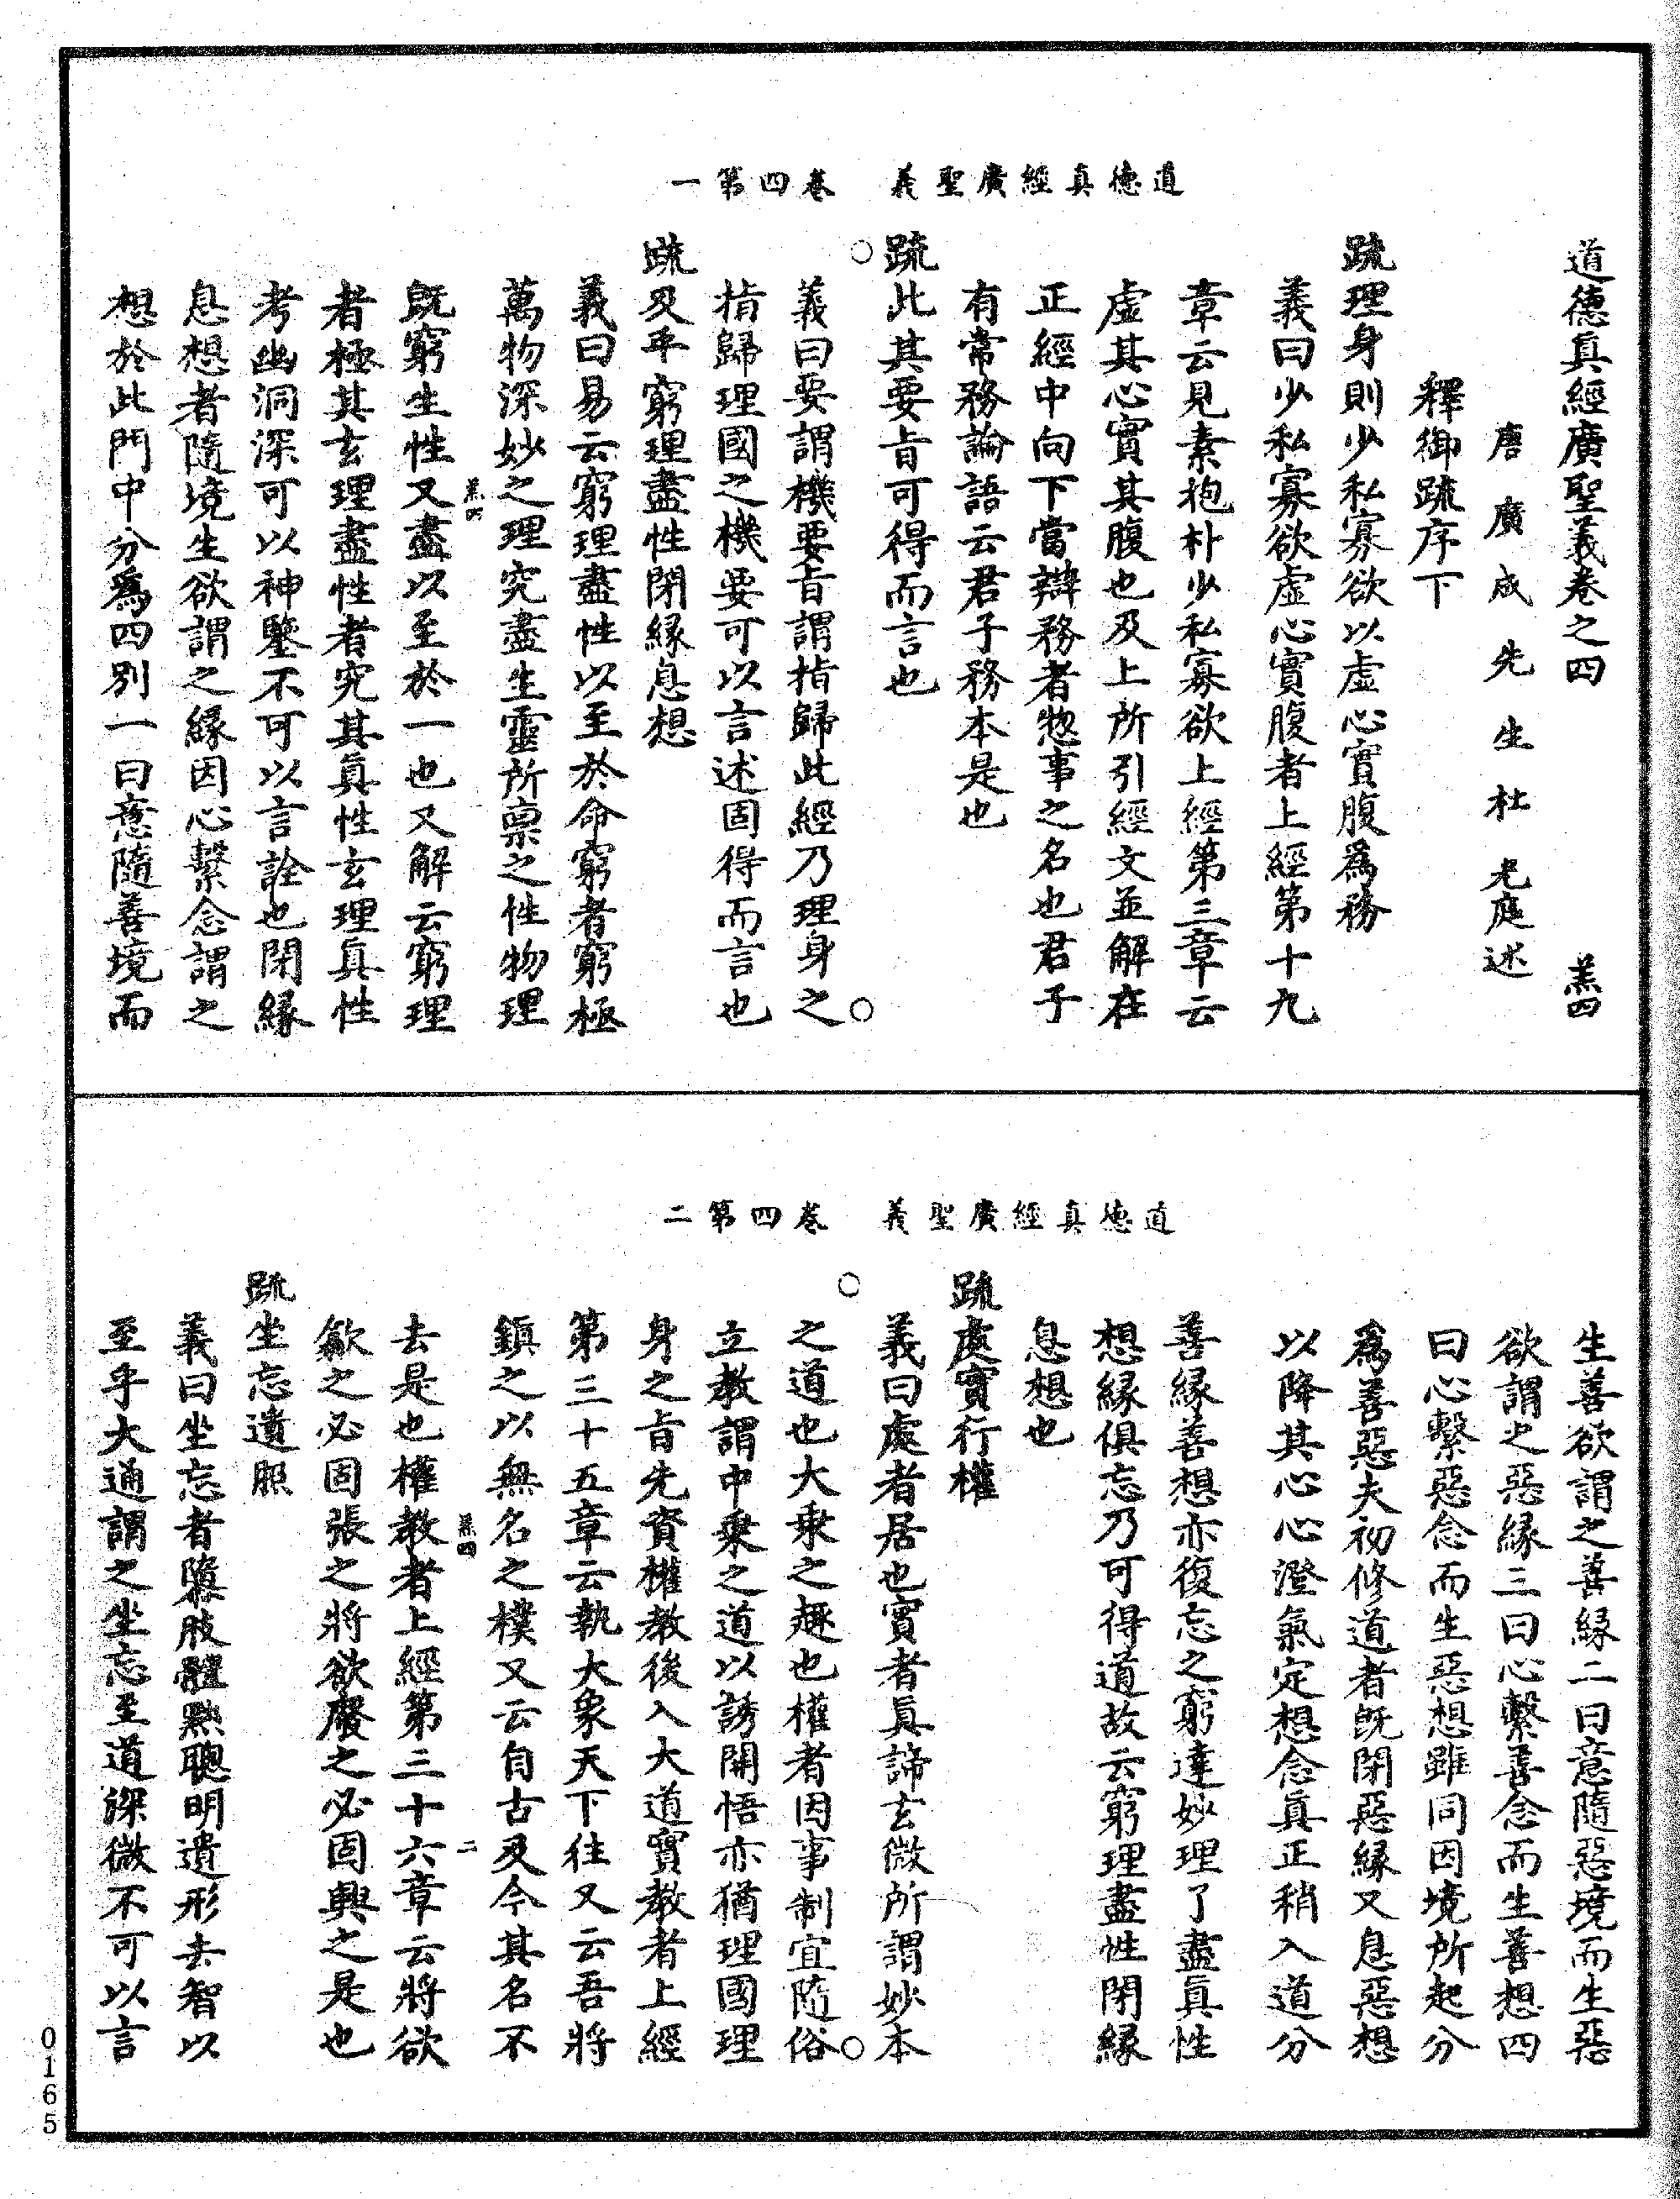 道德真經廣聖義　卷四第一
道德真經廣聖義卷之四　羔四
唐廣成先生杜光庭述
釋御䟽序下
䟽理身則少私寡欲以虛心實腹為務
義曰少私寡欲虛心實腹者上經第十九
章云見素抱朴少私寡欲上經第三章云
虛其心實其腹也及上所引經文並解在
正經中向下當辯務者惣事之名也君子
有常務論語云君子務本是也
䟽此其要㫖可得而言也
義曰要謂機要㫖謂指歸此經乃理身之
指歸理國之機要可以言述固得而言也
䟽及乎窮理盡性閉緣息想
義曰易云窮理盡性以至於命窮者窮極
萬物深妙之理究盡生靈所稟之性物理
羔四
既窮生性又盡以至於一也又解云窮理
者極其玄理盡性者究其真性玄理真性
考幽洞深可以神鑒不可以言詮也閉緣
息想者隨境生欲謂之緣因心繫念謂之
想於此門中分為四別一曰意隨善境而
道德真經廣聖義　卷四第二
生善欲謂之善緣二曰意隨惡境而生惡
欲謂之惡緣三曰心繫善念而生善想四
曰心繫惡念而生惡想雖同因境所起分
為善惡夫初修道者既閉惡緣又息惡想
以降其心心澄氣定想念真正稍入道分
善緣善想亦復忘之窮達妙理了盡真性
想緣俱忘乃可得道故云窮理盡性閉緣
息想也
䟽處實行權
義曰處者居也實者真諦玄微所謂妙本
之道也大乘之趣也權者因事制宜隨俗
立教謂中乘之道以誘開悟亦猶理國理
身之㫖先資權教後入大道實教者上經
第三十五章云執大象天下往又云吾將
鎮之以無名之樸又云自古及今其名不
羔四　二
去是也權教者上經第三十六章云將欲
歙之必固張之將欲廢之必固興之是也
䟽坐忘遺照
義曰坐忘者隳肢體黜聰明遺形去智以
至乎大通謂之坐忘至道深微不可以言
0165